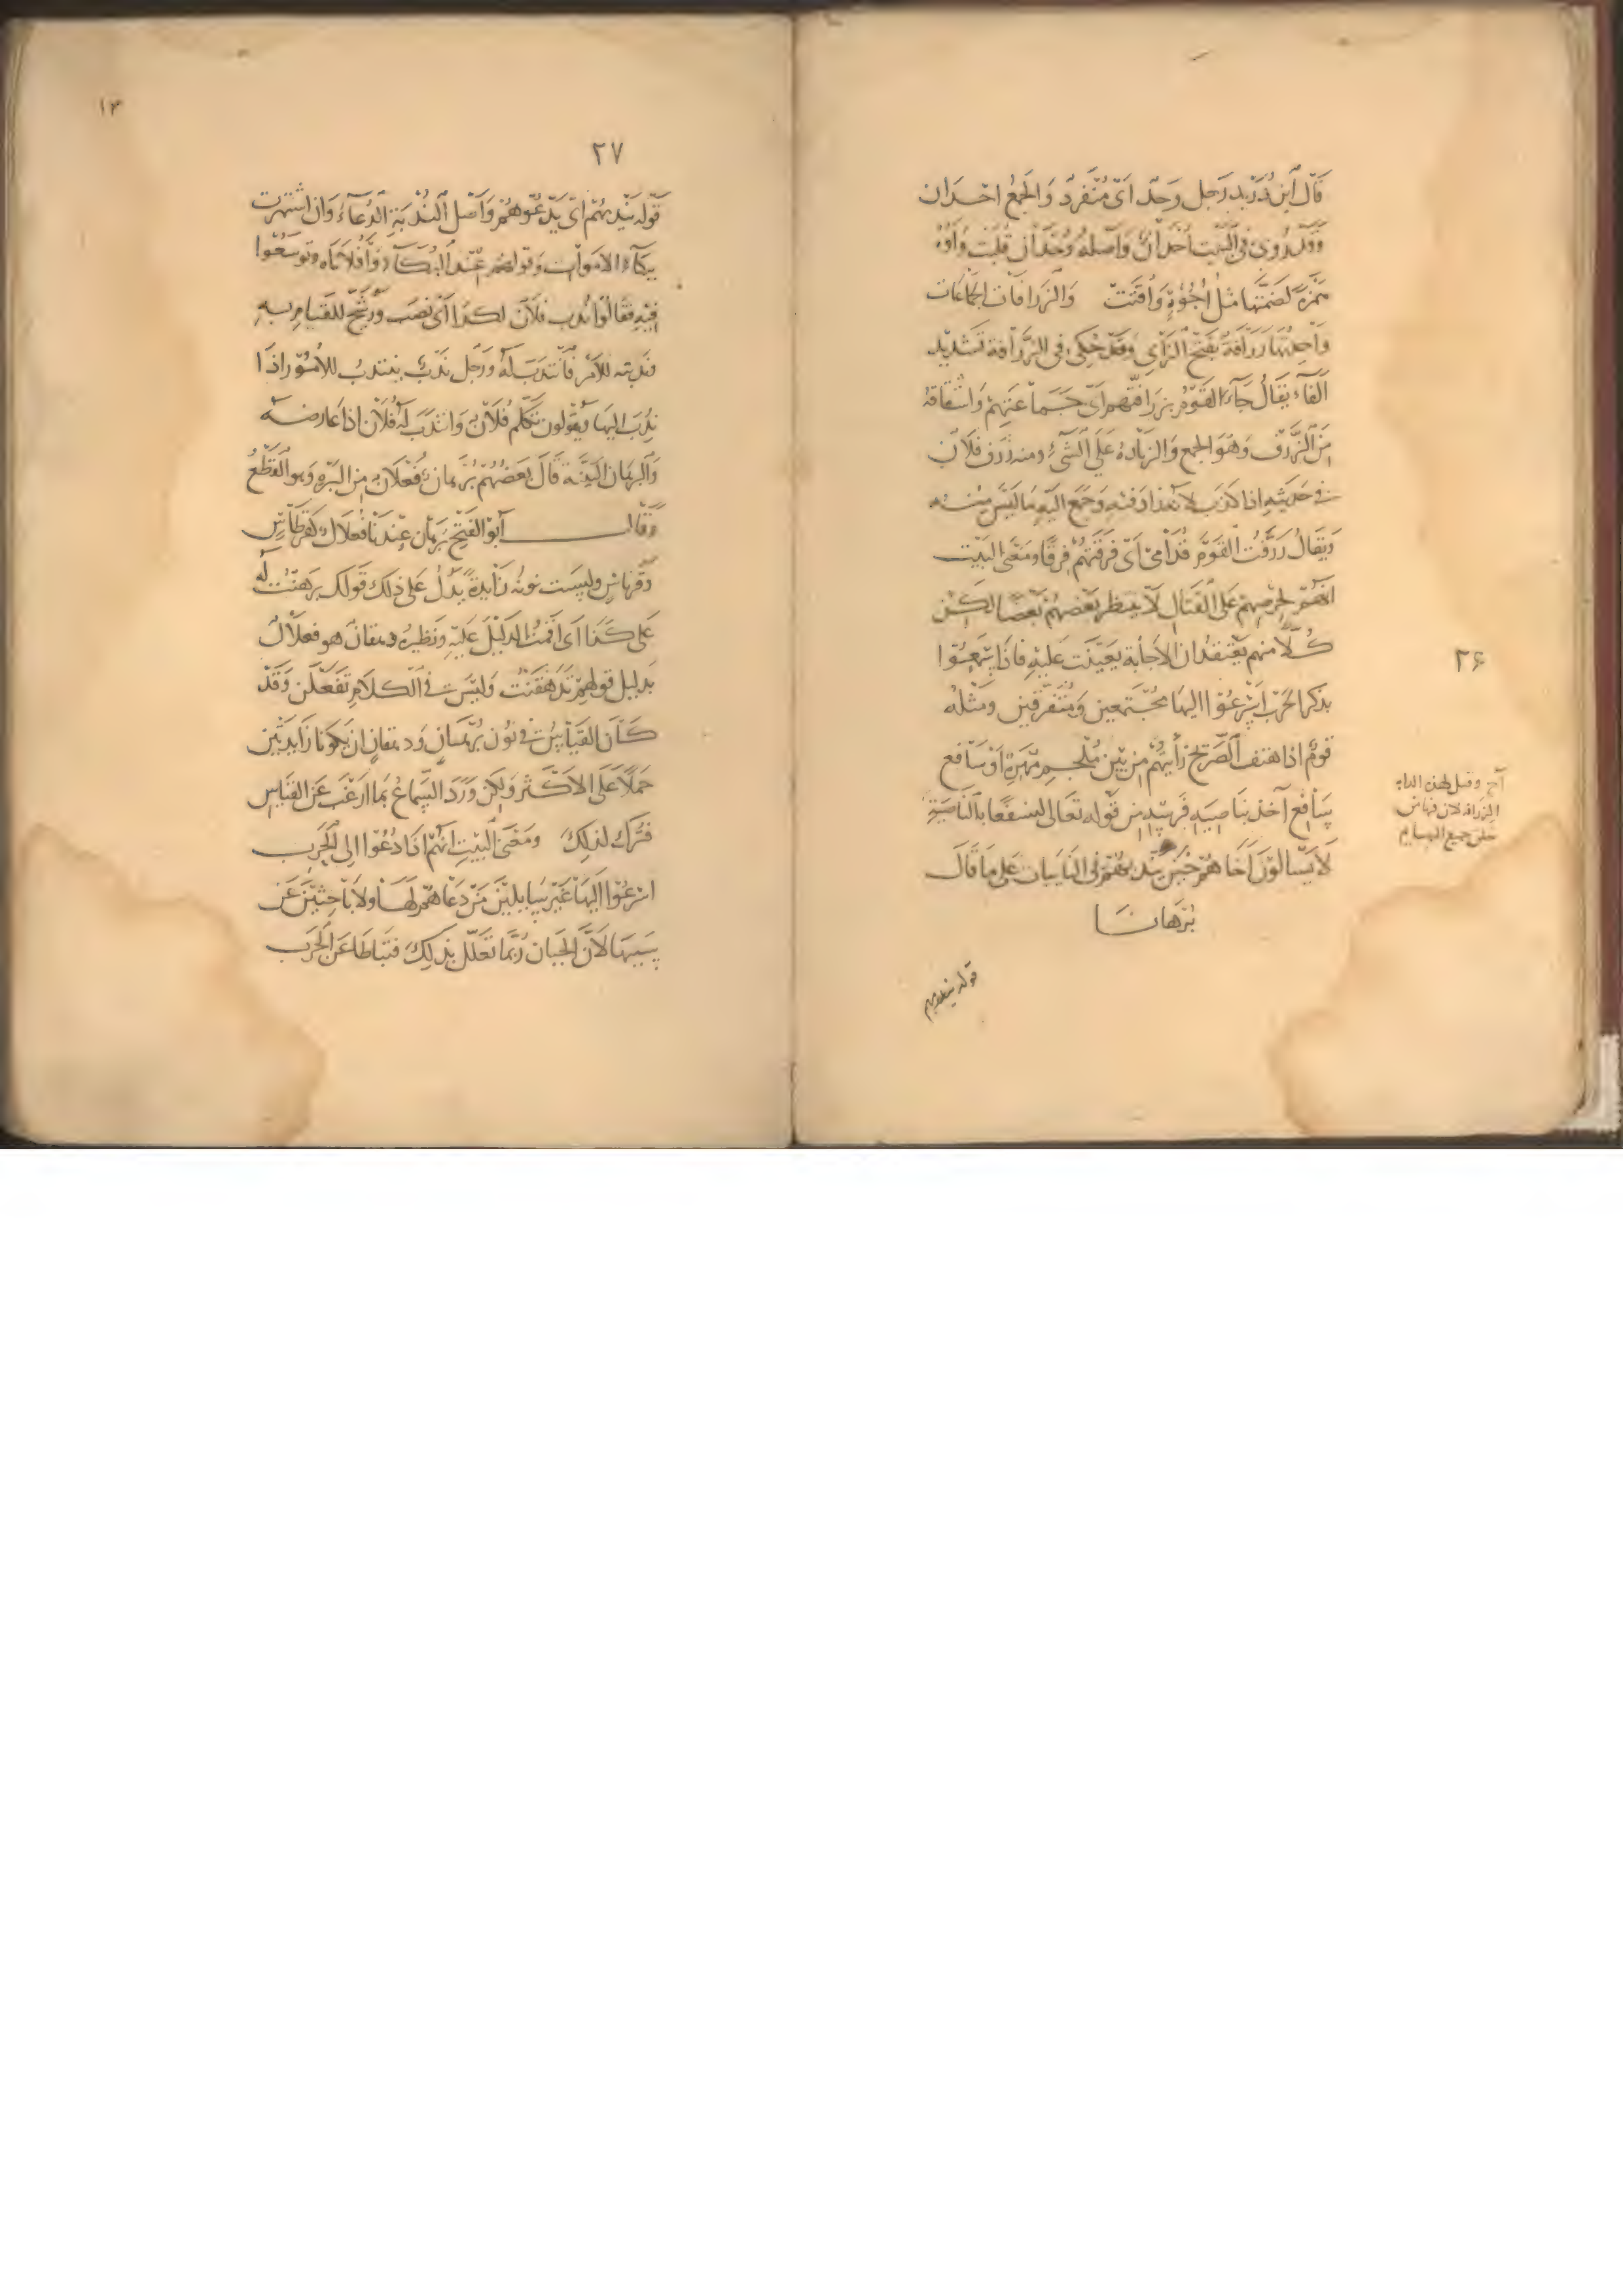 قَالَ ابن دُرَيد رَجل وَحَد اَىْ مُنْفَردٌ وَالجمعُ احْدَان
وَقَد رُوىَ فى البَيت اُحْدَانٌ وَاَصله وُحْدَان قلبَت وَاوُه
همزة لضمتها مثل اُجُوُهٍ وَاقتَتْ وَالزرافات الجمَاعَات
وَاحِدتها زرافَة بفتح الزاىِ وَقَد حُكى فى الزَّرَافة تشديد
الفَاء يقالُ جَاءَ القَومُ بزرافتهم اَىْ جَمَاعَتهِمْ وَاشتقَاقهُ
مِنَ الزَّرْف وَهُوَ الجمع وَالزيادة عَلَى الشَّئ ومنه زرف فلَان
فى حَدِيثهِ اذا كذب وَجَمَع اليَهِ مَا لَيسَ منه
وَيقالُ زرَّفْتُ القَومَ قُدَّامى اَىْ فرقتهُمْ فِرقًا ومَعْنى البَيْت
انهُمْ لحرصِهِمْ عَلى القتَالِ لَا ينتظر بَعضهُمْ بَعْضًا لكن
كُلًّا منهم يَعْتقد ان الاجَابَة تعيَّنَتْ عليهِ فاذا سَمِعُوا
بذكر الحَرْب اسْرعُوا اليهَا مُجتَمعين وَمُتَفَرّقين ومثلُه
قومٌ اذا هتف الصَّريخُ رَأيتهُمْ مِن بَيْن مُلْجم مُهْرِهِ اَوْ سَافع
سَافع آخذ بنَاصِيَه فَرسِهِ من قوله تعَالى لنسفعًا بالنَّاصيَةِ
لَا يَسْالُونَ اَخَاهُمْ حينَ يَنْدبهُمْ فى النَايبَات عَلى مَا قَالَ
بُرْهَانَا
قوله يندبهم
٢۶
وقيل لهذه الدابة
الزرافة لان فيها من
خلق جميع البهايم
١٣
٢٧
قَوله يَنْدبهُم اى يَدْعُوهُمْ وَاَصْل النُّدْبَةِ الدُّعَاءُ وَان اشتهَرت
ببُكَاء الاموَات وَقولهم عِنْدَ البُكَاءِ وَا فُلَانَاه وتوسَّعُوا
فيهِ فقَالُوا نُدِبَ فلَان لكذا اَى نُصِبَ وَرُشّحَ للقيَام بهِ
وندبته للاَمر فانتدَبَ لهُ وَرَجُل نَدْبٌ ينتدبُ للاُمُور اذَا
نُدِبَ اليها وَيقولون تكلم فُلَانٌ وَانتدَبَ لهُ فلَان اذا عَارضه
وَالبرهَان البَيّنَة قَالَ بَعضُهُمْ بُرْهَانٌ فُعْلَانٌ مِن البَرْهِ وَهو القَطْعُ
وَقَالَ اَبُو الفَتْح بُرْهَان عِنْدنَا فُعْلَالٌ كقرطَاسٍ
وقرناسٍ وليسَت نونُه زَايدة يَدُلُّ عَلى ذلك قَولك بَرْهَنْتُ لَه
عَلى كَذَا اَى اقَمْتُ الدليلَ عَلَيهِ وَنَظيرهُ دهقانٌ هو فعْلَالٌ
بدَليل قولهِمْ تَدَهْقَنْتُ وَليْسَ فى الكلَام تَفَعْلَنَ وَقَدْ
كَانَ القيَاسُ فى نُون بُرْهَانٍ وَدهقانٍ ان يكونَا زايدَتَيْن
حَمْلًا عَلَى الاَكْثَر وَلكن وَرَدَ السَّمَاعُ بمَا اَرْغَبَ عَن القيَاس
فتُرِك لذلِكَ وَمَعْنَى البَيْتِ انَّهُمْ اذَا دُعُوا الى الحَرْب
اسْرعُوا اليهَا غَيْرَ سَايلينَ مَنْ دَعَاهُمْ لَهَا ولَا بَاحِثِيْنَ عَنْ
سَبَبهَا لَانَّ الجَبَان رُبَّمَا تَعَلّل بذلِكَ فتبَاطَا عَن الحَرْب